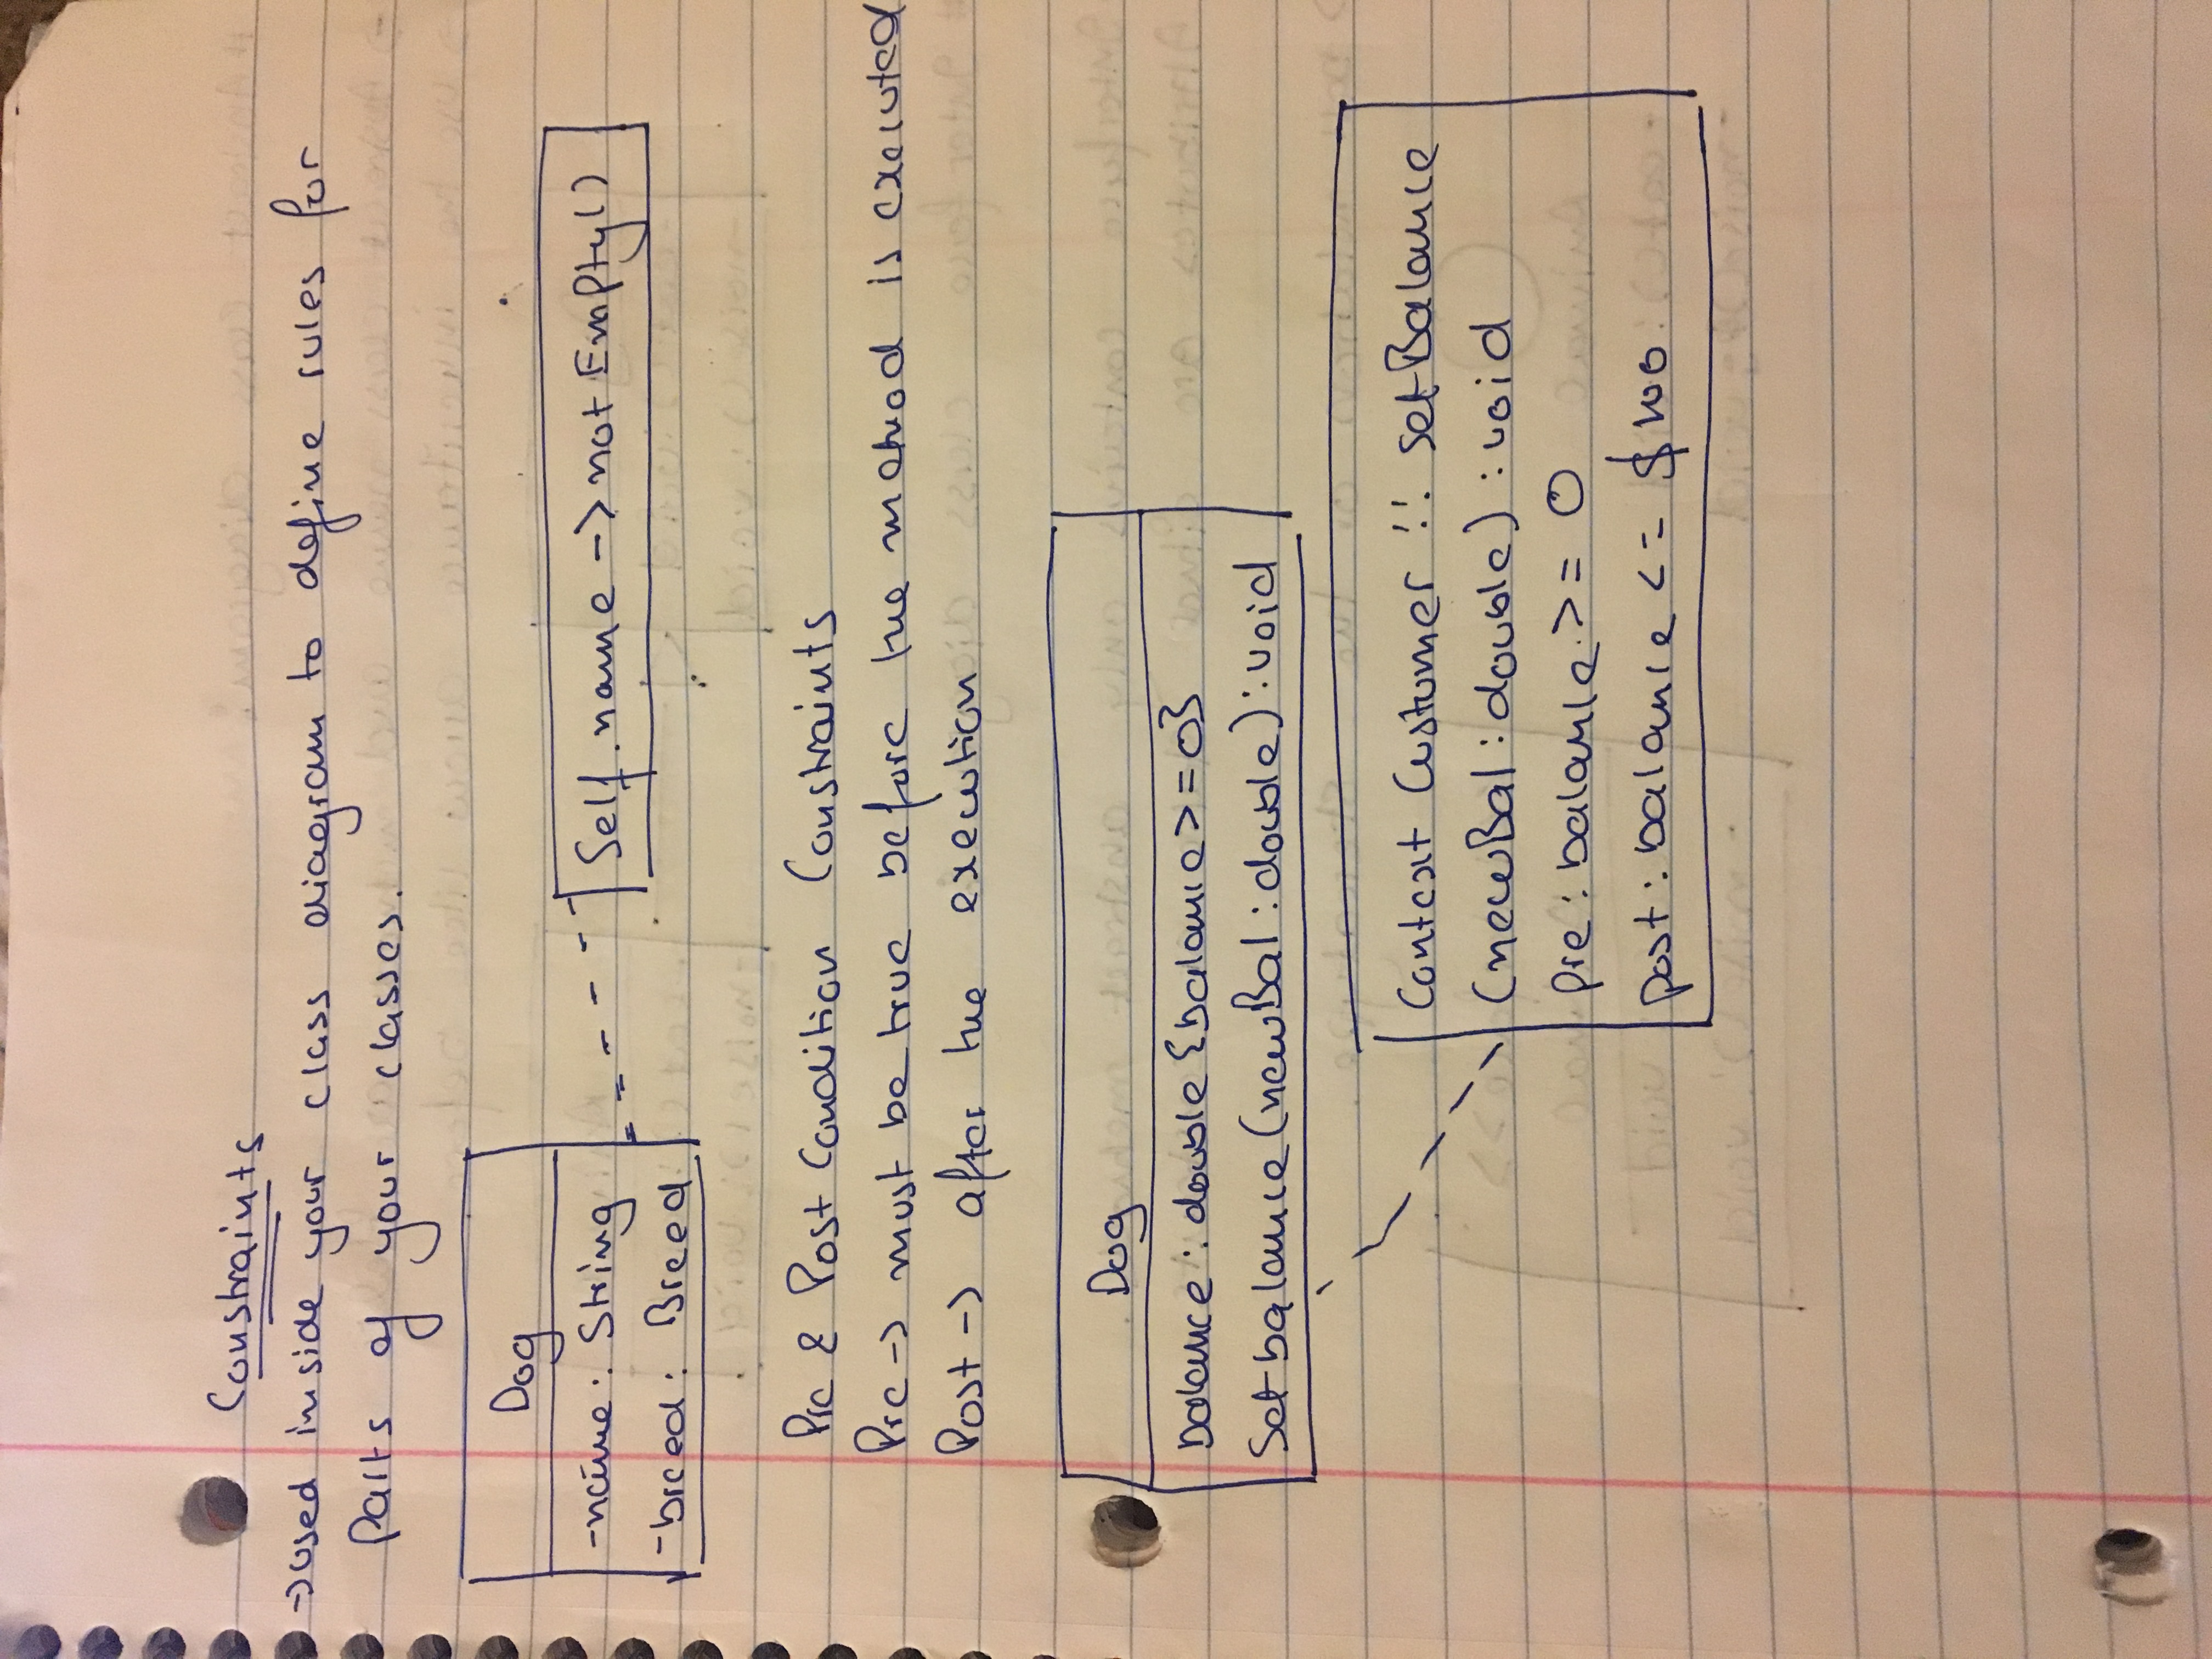 Constraints
-> used inside your class diagram to define rules for
parts of your classes.
Dog
-name: String
-breed: Breed
Self.name -> notEmpty()
Pre & Post Condition Constraints
Pre -> must be true before the method is executed
Post -> after the execution
Dog
balance: double {balance>=0}
Setbalance(newBal:double):void
Context Custumer :: setBalance
(newBal:double) :void
pre: balance >= 0
post: balance <= $100